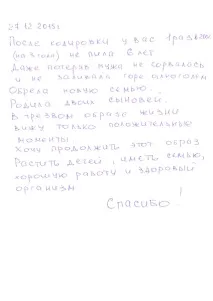 29.12.2015г
После кодировки у вас 1 раз в 2006
не пила 6 лет
Даже потеряв мужа не сорвалась
и не заливала горе алкоголем
Обрела новую семью.
Родила двоих сыновей.
В трезвом образе жизни
вижу только положительные
моменты.
Хочу продолжить этот образ
Растить детей, иметь семью,
хорошую работу и здоровый
организм
Спасибо!